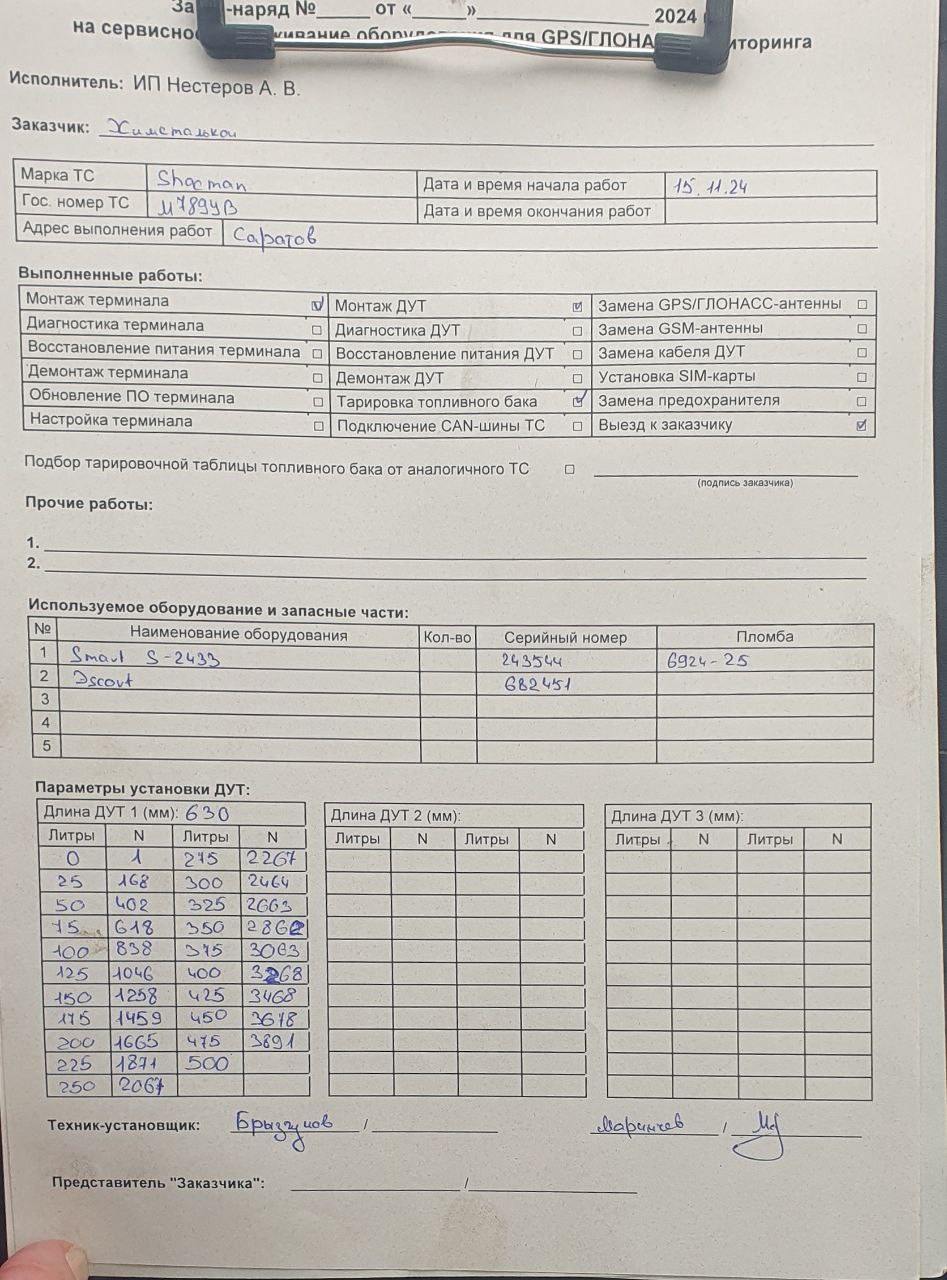 -наряд №_____ от «_____»_______________ 2024
на сервисно оборудования для GPS/ГЛОНА иторинга
Исполнитель: ИП Нестеров А. В.
Заказчик: Химсталькон
Марка ТС Shacman Дата и время начала работ 15.11.24
Гос. номер ТС М789УВ Дата и время окончания работ
Адрес выполнения работ Саратов
Выполненные работы:
Монтаж терминала ☑ Монтаж ДУТ ☑ Замена GPS/ГЛОНАСС-антенны ☐
Диагностика терминала ☐ Диагностика ДУТ ☐ Замена GSM-антенны ☐
Восстановление питания терминала ☐ Восстановление питания ДУТ ☐ Замена кабеля ДУТ ☐
Демонтаж терминала ☐ Демонтаж ДУТ ☐ Установка SIM-карты ☐
Обновление ПО терминала ☐ Тарировка топливного бака ☑ Замена предохранителя ☐
Настройка терминала ☐ Подключение CAN-шины ТС ☐ Выезд к заказчику ☑
Подбор тарировочной таблицы топливного бака от аналогичного ТС ☐
(подпись заказчика)
Прочие работы:
1.
2.
Используемое оборудование и запасные части:
№ Наименование оборудования Кол-во Серийный номер Пломба
1 Smart S-2433 243544 6924-25
2 Dscout 682451
3
4
5
Параметры установки ДУТ:
Длина ДУТ 1 (мм): 630 Длина ДУТ 2 (мм): Длина ДУТ 3 (мм):
Литры N Литры N Литры N Литры N Литры N Литры N
0 1 275 2267
25 168 300 2464
50 402 325 2663
75 618 350 2862
100 838 375 3063
125 1046 400 3268
150 1258 425 3468
175 1459 450 3678
200 1665 475 3891
225 1871 500
250 2067
Техник-установщик: Брызгунов / Маричев /
Представитель "Заказчика": /